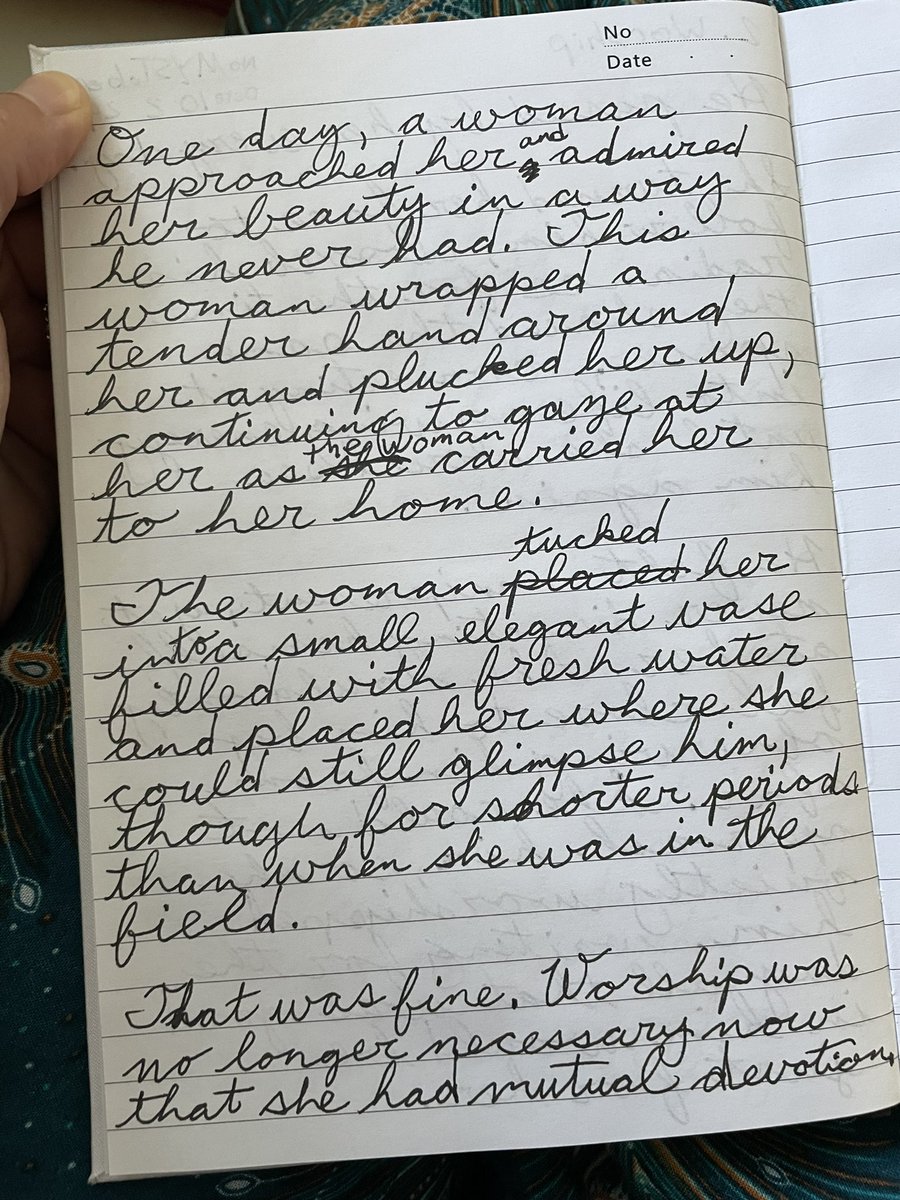 No
Date
One day, a woman
approached her and admired
her beauty in a way
he never had. This
woman wrapped a
tender hand around
her and plucked her up,
continuing to gaze at
her as the woman carried her
to her home.
The woman tucked her
into a small, elegant vase
filled with fresh water
and placed her where she
could still glimpse him,
though for shorter periods
than when she was in the
field.
That was fine. Worship was
no longer necessary now
that she had mutual devotion.